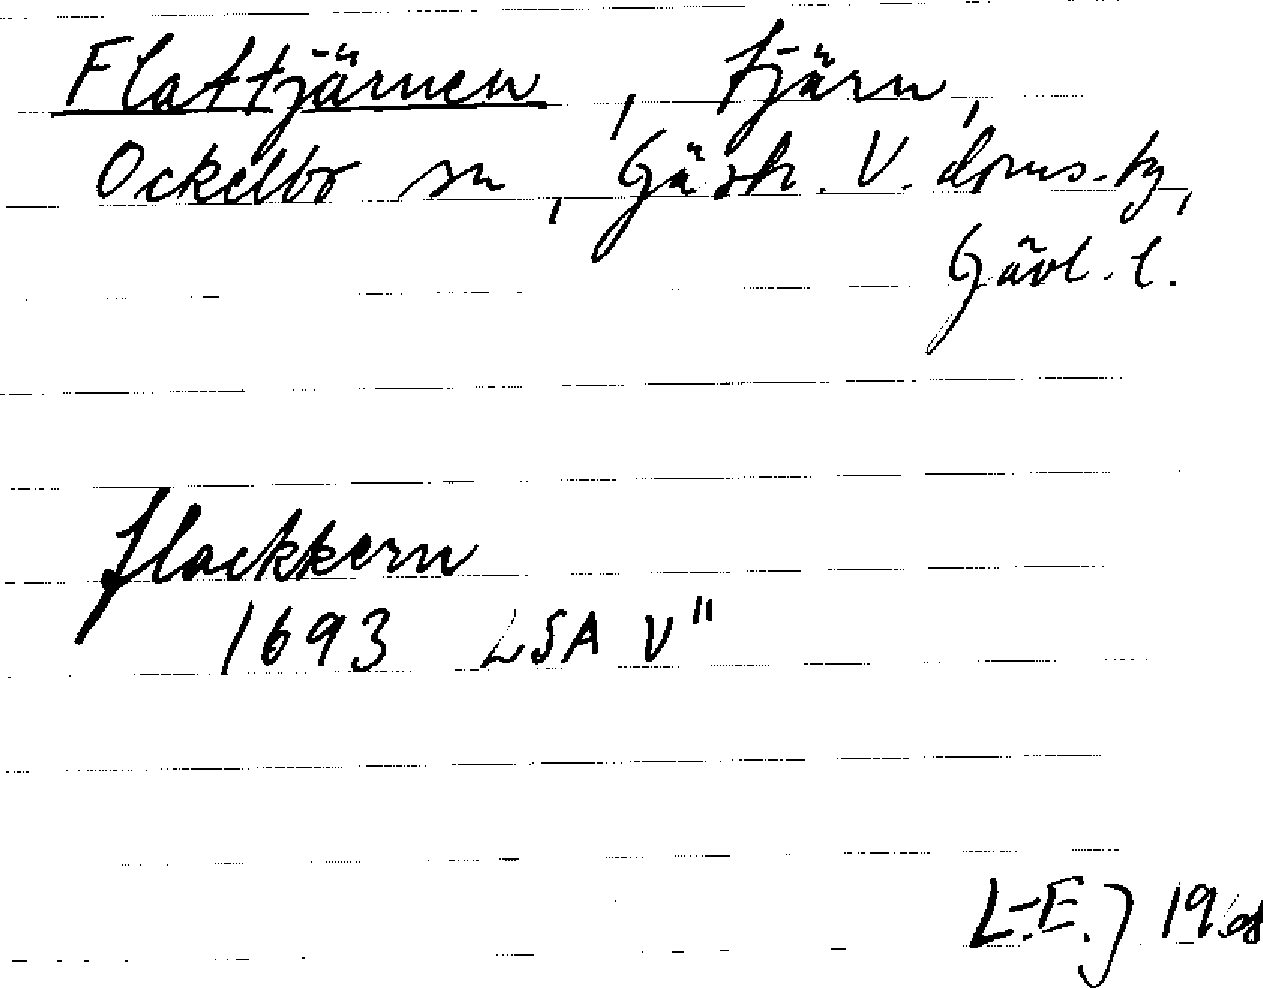 Flattjärnen, tjärn,
Ockelbo sn, Gästr. V. doms.-hg,
Gävl. l.
flackkern
1693 LSA V"
L-E.J 1968